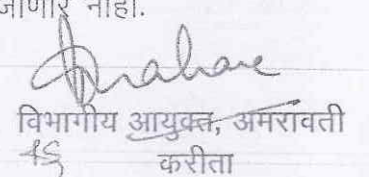 जाणार नाही.
विभागीय आयुक्त, अमरावती
करीता